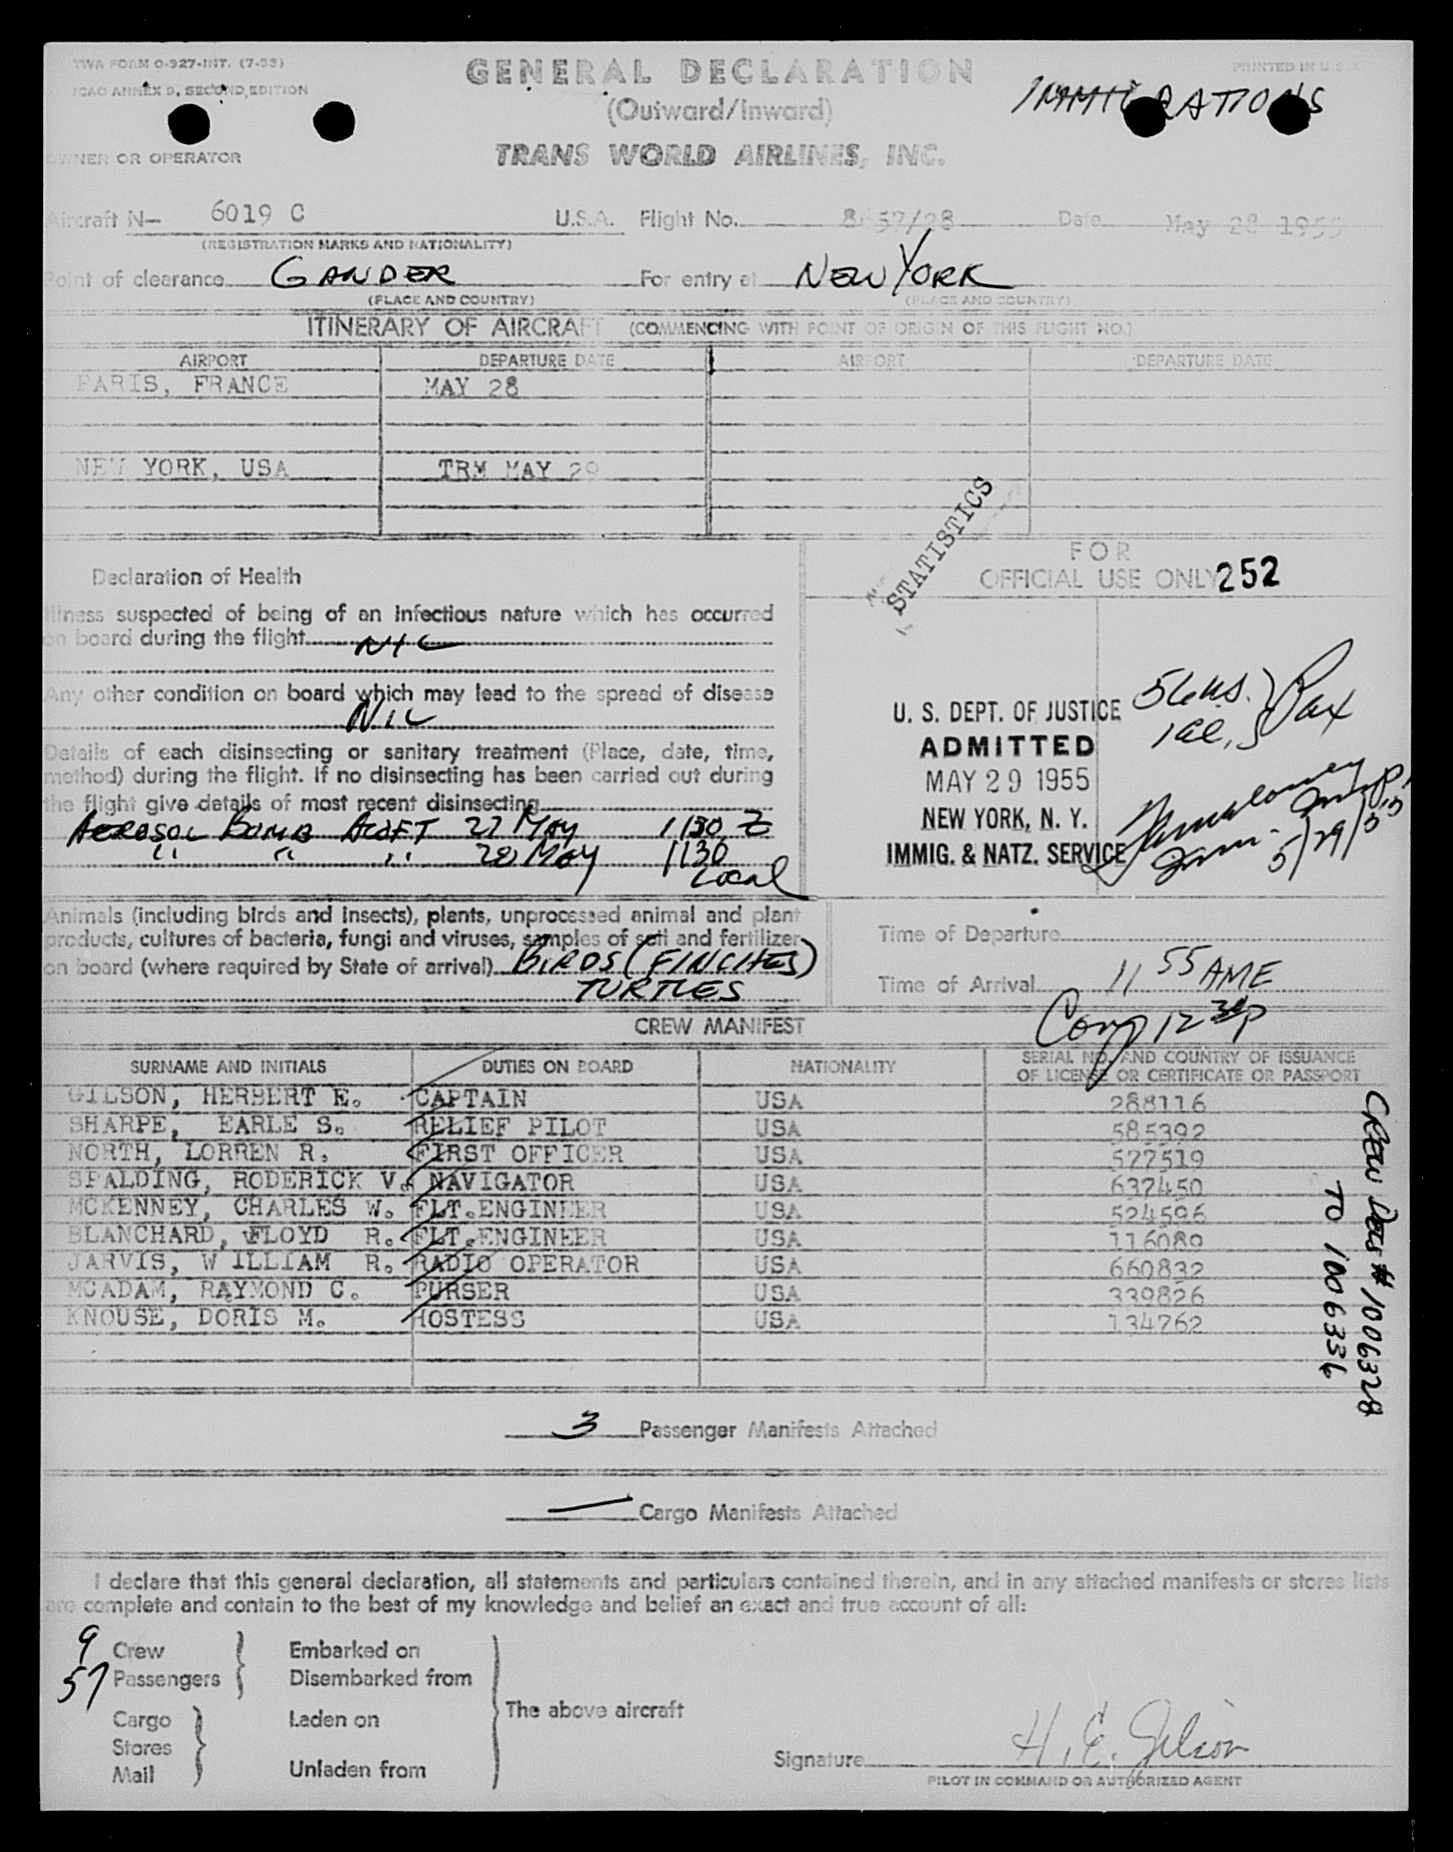 TWA FORM O-927-INT. (7-53)
ICAO ANNEX 9, SECOND EDITION
PRINTED IN U.S.A.
GENERAL DECLARATION
(Outward/Inward)
IMMIGRATIONS
OWNER OR OPERATOR
TRANS WORLD AIRLINES, INC.
Aircraft N- 6019 C U.S.A. Flight No. 8657/28 Date May 28 1955
(REGISTRATION MARKS AND NATIONALITY)
Point of clearance GANDER For entry at NEW YORK
(PLACE AND COUNTRY) (PLACE AND COUNTRY)
ITINERARY OF AIRCRAFT (COMMENCING WITH POINT OF ORIGIN OF THIS FLIGHT NO.)
AIRPORT DEPARTURE DATE AIRPORT DEPARTURE DATE
PARIS, FRANCE MAY 28
NEW YORK, USA TRM MAY 29
STATISTICS
FOR
OFFICIAL USE ONLY 252
Declaration of Health
Illness suspected of being of an infectious nature which has occurred
on board during the flight NIL
Any other condition on board which may lead to the spread of disease
NIL
Details of each disinsecting or sanitary treatment (Place, date, time,
method) during the flight. If no disinsecting has been carried out during
the flight give details of most recent disinsecting
AEROSOL BOMB ACFT 27 MAY 1130 Z
" " " 28 MAY 1130
LOCAL
56 us. } Pax
1 al.
U. S. DEPT. OF JUSTICE
ADMITTED
MAY 29 1955
NEW YORK, N. Y.
IMMIG. & NATZ. SERVICE
5/29/55
Animals (including birds and insects), plants, unprocessed animal and plant
products, cultures of bacteria, fungi and viruses, samples of soil and fertilizer
on board (where required by State of arrival) BIRDS (FINCHES)
TURTLES
Time of Departure
Time of Arrival 11 55 AME
Comp 12 30 p
CREW MANIFEST
SURNAME AND INITIALS DUTIES ON BOARD NATIONALITY SERIAL NO. AND COUNTRY OF ISSUANCE
OF LICENSE OR CERTIFICATE OR PASSPORT
GILSON, HERBERT E. CAPTAIN USA 288116
SHARPE, EARLE S. RELIEF PILOT USA 585392
NORTH, LORREN R. FIRST OFFICER USA 577519
SPALDING, RODERICK V. NAVIGATOR USA 637450
MCKENNEY, CHARLES W. FLT.ENGINEER USA 524596
BLANCHARD, FLOYD R. FLT.ENGINEER USA 116089
JARVIS, W ILLIAM R. RADIO OPERATOR USA 660832
MCADAM, RAYMOND C. PURSER USA 339826
KNOUSE, DORIS M. HOSTESS USA 134762
CREW Decs # 1006328
TO 1006336
3 Passenger Manifests Attached
— Cargo Manifests Attached
I declare that this general declaration, all statements and particulars contained therein, and in any attached manifests or stores lists
are complete and contain to the best of my knowledge and belief an exact and true account of all:
9 Crew } Embarked on
57 Passengers Disembarked from
The above aircraft
Cargo } Laden on
Stores
Mail Unladen from
Signature H. E. Gilson
PILOT IN COMMAND OR AUTHORIZED AGENT